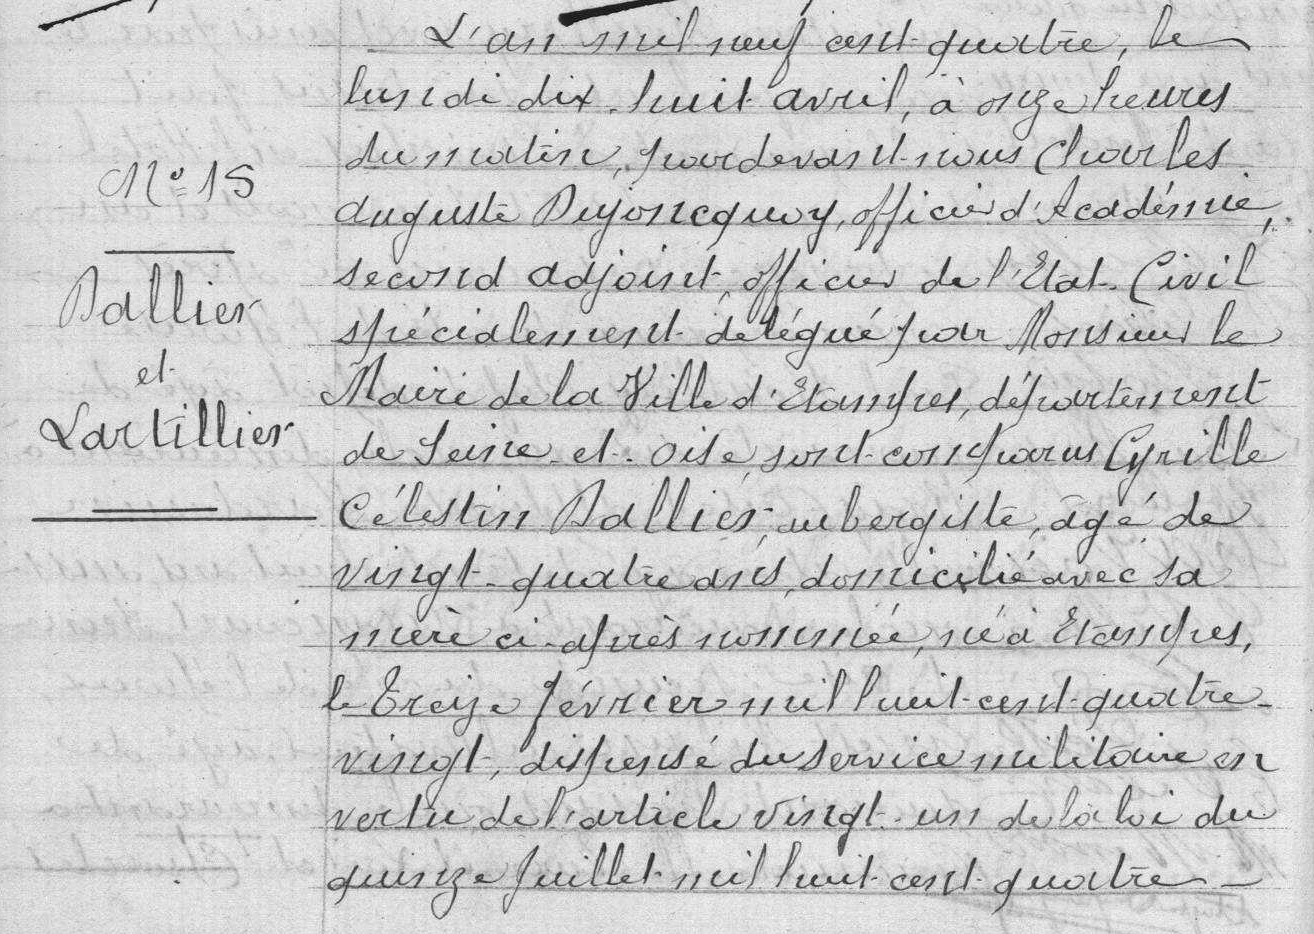 N° 15
Dallier
et
Lartillier
L'an mil neuf cent quatre, le
lundi dix-huit avril, à onze heures
du matin, pardevant nous Charles
Auguste Dujoncquoy, officier d'Académie,
second adjoint, officier de l'Etat-Civil
spécialement délégué par Monsieur le
Maire de la Ville d'Etampes, département
de Seine-et-Oise, sont comparus Cyrille
Célestin Dallier, aubergiste, âgé de
vingt-quatre ans, domicilié avec sa
mère ci-après nommée, né à Etampes,
le treize février mil huit cent quatre-
vingt, dispensé du service militaire en
vertu de l'article vingt-un de la loi du
quinze Juillet mil huit cent quatre-